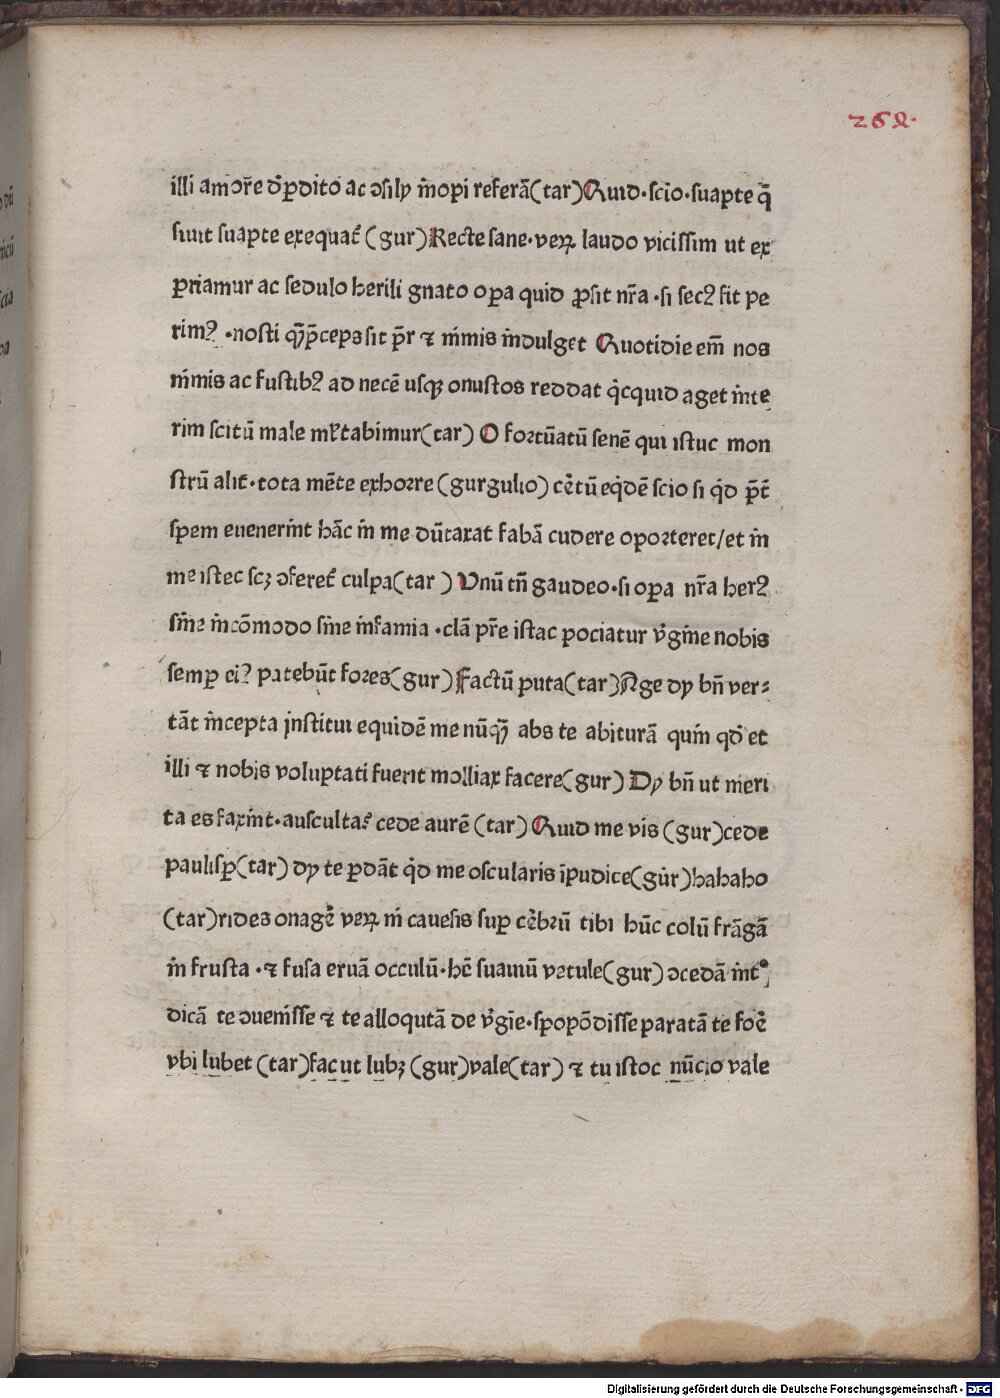 262.
illi amōre ꝺꝑdito ac ↄsilÿ īnopi referā(tar)Quid·scio·suapte q̄
siuit suapte exequat᷑ (gur)Recte sane·veꝝ laudo vicissim ut ex
ꝑriamur ac sedulo herili gnato oꝑa quid ꝓsit nr̄a·si secꝰ fit pe
rimꝰ·nosti qꝫp̄ceps sit pr̄ ⁊ nimis indulget Quotidie em̄ nos
nimis ac fustibꝰ ad necē usqꝫ onustos reddat qͥcquid aget inte
rim scitū male ml̓tabimur(tar) O fortūatū senē qui istuc mon
strū alit·tota mēte exhorre (gurgulio) cētū eqͥdē scio si qͥd p̄t᷑
spem euenerint hāc in me dūtaxat fabā cudere oporteret/et in
me istec scꝫ ↄferet᷑ culpa(tar ) Vnū tn̄ gaudeo·si oꝑa nr̄a herꝰ
sine incōmodo sine infamia·clā pr̄e istac pociatur v̓gine nobis
semꝑ eiꝰ patebūt fores(gur)Factū puta(tar)Age dÿ bn̄ ver-
tāt incepta institui equidē me nūqꝫ abs te abiturā quin qd̄ et
illi ⁊ nobis voluptati fuerit molliax facere(gur) Dÿ bn̄ ut meri
ta es faxint·auscultaꝰ cede aurē (tar) Quid me vis (gur)cede
paulisꝑ(tar) dÿ te ꝑdāt qͥd me oscularis īpudice(gur)hahaho
(tar)rides onagē veꝝ ni cauesis suꝑ cēbrū tibi hūc colū frāgā
in frusta·⁊ fusa eruā occulū·hē suauiū vetule(gur) ↄcedā int᷑ꝰ
dicā te ↄuenisse ⁊ te alloqutā de v̓gīe·spopōdisse paratā te foē
vbi lubet (tar)fac ut lubꝫ (gur)vale(tar) ⁊ tu istoc nūcio vale
Digitalisierung gefördert durch die Deutsche Forschungsgemeinschaft - DFG